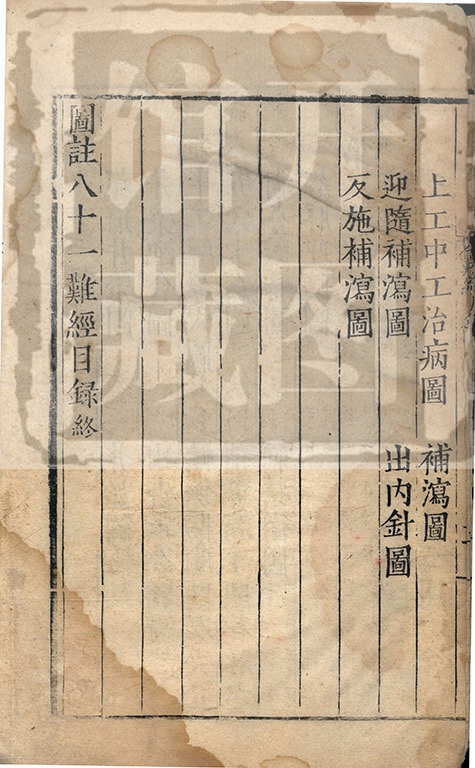 上工中工治病圖　補瀉圖
迎隨補瀉圖　出内針圖
反施補瀉圖
圖註八十一難經目録終